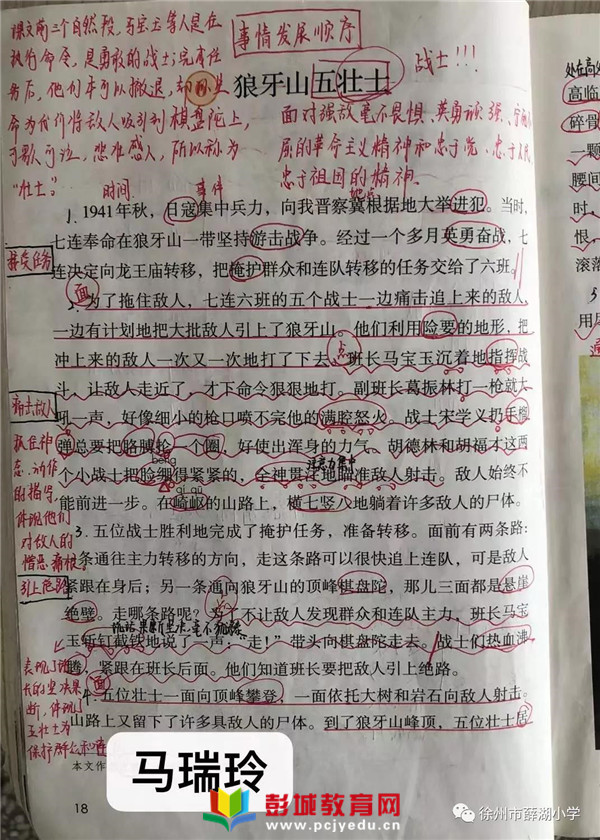 课文前三个自然段,马宝玉等人是在
执行命令,是勇敢的战士;完成任
务后,他们本可以撤退,却用生
命为代价将敌人吸引到棋盘陀上,
可歌可泣,悲壮感人,所以称为
"壮士"。
事情发展顺序
战士!!!
狼牙山五壮士
面对强敌毫不畏惧、英勇顽强、宁
屈的革命主义精神和忠于党、忠于人民、
忠于祖国的精神。
时间
事件
1.1941年秋,日寇集中兵力,向我晋察冀根据地大举进犯。当时,
七连奉命在狼牙山一带坚持游击战争。经过一个多月英勇奋战,七
连决定向龙王庙转移,把掩护群众和连队转移的任务交给了六班。
接受任务
面
2.为了拖住敌人,七连六班的五个战士一边痛击追上来的敌人,
一边有计划地把大批敌人引上了狼牙山。他们利用险要的地形,把
冲上来的敌人一次又一次地打了下去。班长马宝玉沉着地指挥战
点
斗,让敌人走近了,才下命令狠狠地打。副班长葛振林打一枪就大
吼一声,好像细小的枪口喷不完他的满腔怒火。战士宋学义扔手榴
弹总要把胳膊抡一个圈,好使出浑身的力气。胡德林和胡福才这两
个小战士把脸绷得紧紧的,全神贯注地瞄准敌人射击。敌人始终不
能前进一步。在崎岖的山路上,横七竖八地躺着许多敌人的尸体。
痛击敌人
抓住神
态、动作
的描写,
体现他们
对敌人的
憎恶、痛恨
běng
注意力集中
qí qū
3.五位战士胜利地完成了掩护任务,准备转移。面前有两条路:
一条通往主力转移的方向,走这条路可以很快追上连队,可是敌人
紧跟在身后;另一条通向狼牙山的顶峰棋盘陀,那儿三面都是悬崖
绝壁。走哪条路呢?为了不让敌人发现群众和连队主力,班长马宝
玉斩钉截铁地说了一声:"走!"带头向棋盘陀走去。战士们热血沸
腾,紧跟在班长后面。他们知道班长要把敌人引上绝路。
引上绝路
面
4.五位壮士一面向顶峰攀登,一面依托大树和岩石向敌人射击。
山路上又留下了许多具敌人的尸体。到了狼牙山峰顶,五位壮士居
表现了班
长的坚决果
断,体现
五壮士为
保护群众和
本文作
马瑞玲
18
处在高
高临
碎骨
一颗
腰间
时,
恨,
滚落
用
彭城教育网
www.pcjyedu.cn
徐州市薛湖小学